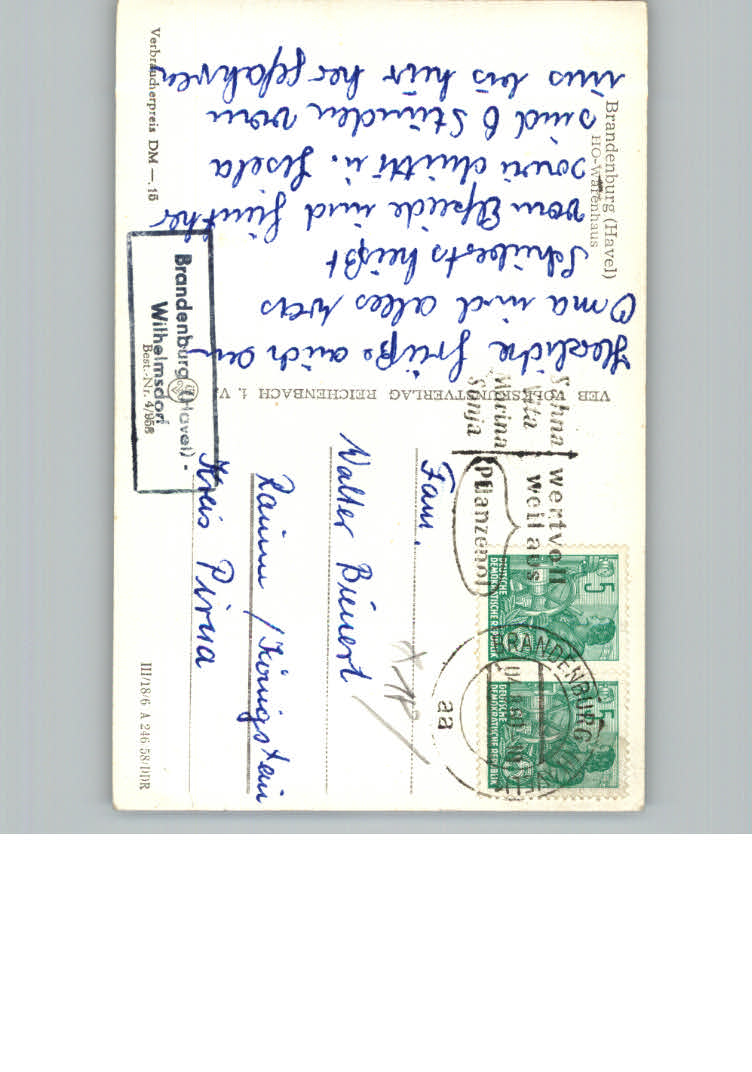 Brandenburg (Havel)
HO-Warenhaus
Herzliche Grüße auch an
Oma und alles was
Schuberts heißt
von Elfriede und Günther
sowie Mutti u. Gisela
sind 6 Stunden von
uns bis hier her gefahren
Verbraucherpreis DM —,15
Brandenburg (Havel) -
Wilhelmsdorf
Best.-Nr. 4/958
VEB VOLKSKUNSTVERLAG REICHENBACH i. V.
Sahna
Vita
Marina
Sonja
wertvoll
weil aus
Pflanzenöl
5
DEUTSCHE
DEMOKRATISCHE REPUBLIK
5
DEUTSCHE
DEMOKRATISCHE REPUBLIK
BRANDENBURG
aa
Fam.
Walter Bienert
/ Königstein
Kreis Pirna
III/18/6 A 246/58/DDR